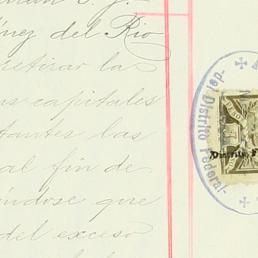 nez del Rio
retirar la
capitales
tantes las
al fin de
ndose que
del exceso
del Distrito Federal